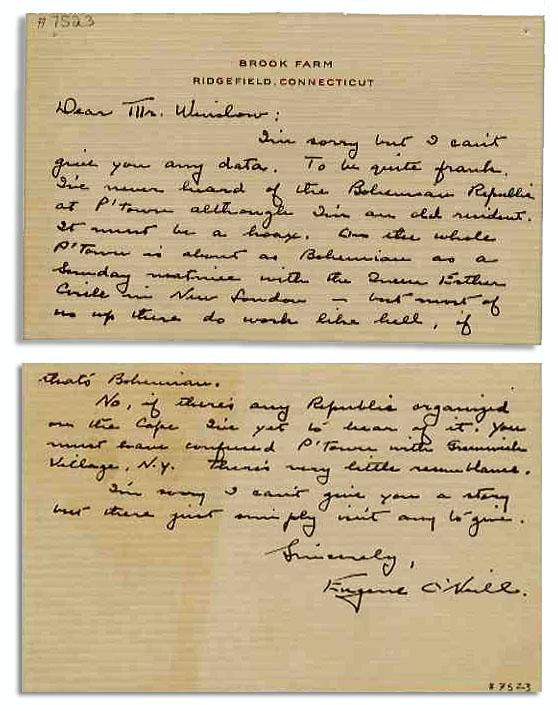 #7523
BROOK FARM
RIDGEFIELD, CONNECTICUT
Dear Mr. Winslow:
I'm sorry but I can't
give you any data. To be quite frank,
I've never heard of the Bohemian Republic
at P'Town although I'm an old resident.
It must be a hoax. On the whole
P'Town is about as Bohemian as a
Sunday matinee with the Queen Esther
Circle in New London – but most of
us up there do work like hell, if
that's Bohemian.
No, if there's any Republic organized
on the Cape I've yet to hear of it. You
must have confused P'Town with Greenwich
Village, N.Y. There's very little resemblance.
I'm sorry I can't give you a story
but there just simply isn't any to give.
Sincerely,
Eugene O'Neill.
#7523